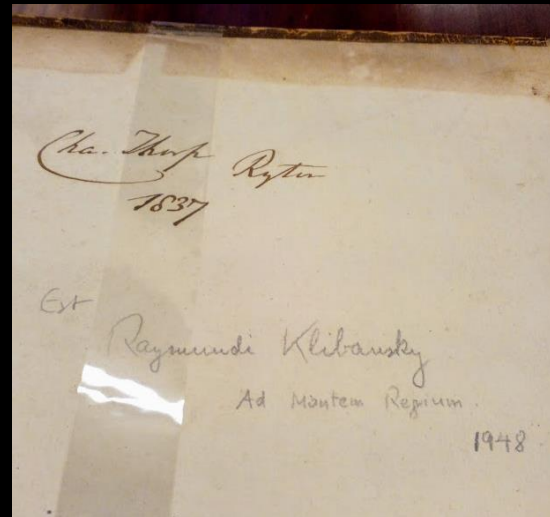 Cha. Thorp Ryton
1837
Est
Raymundi Klibansky
Ad Montem Regium.
1948